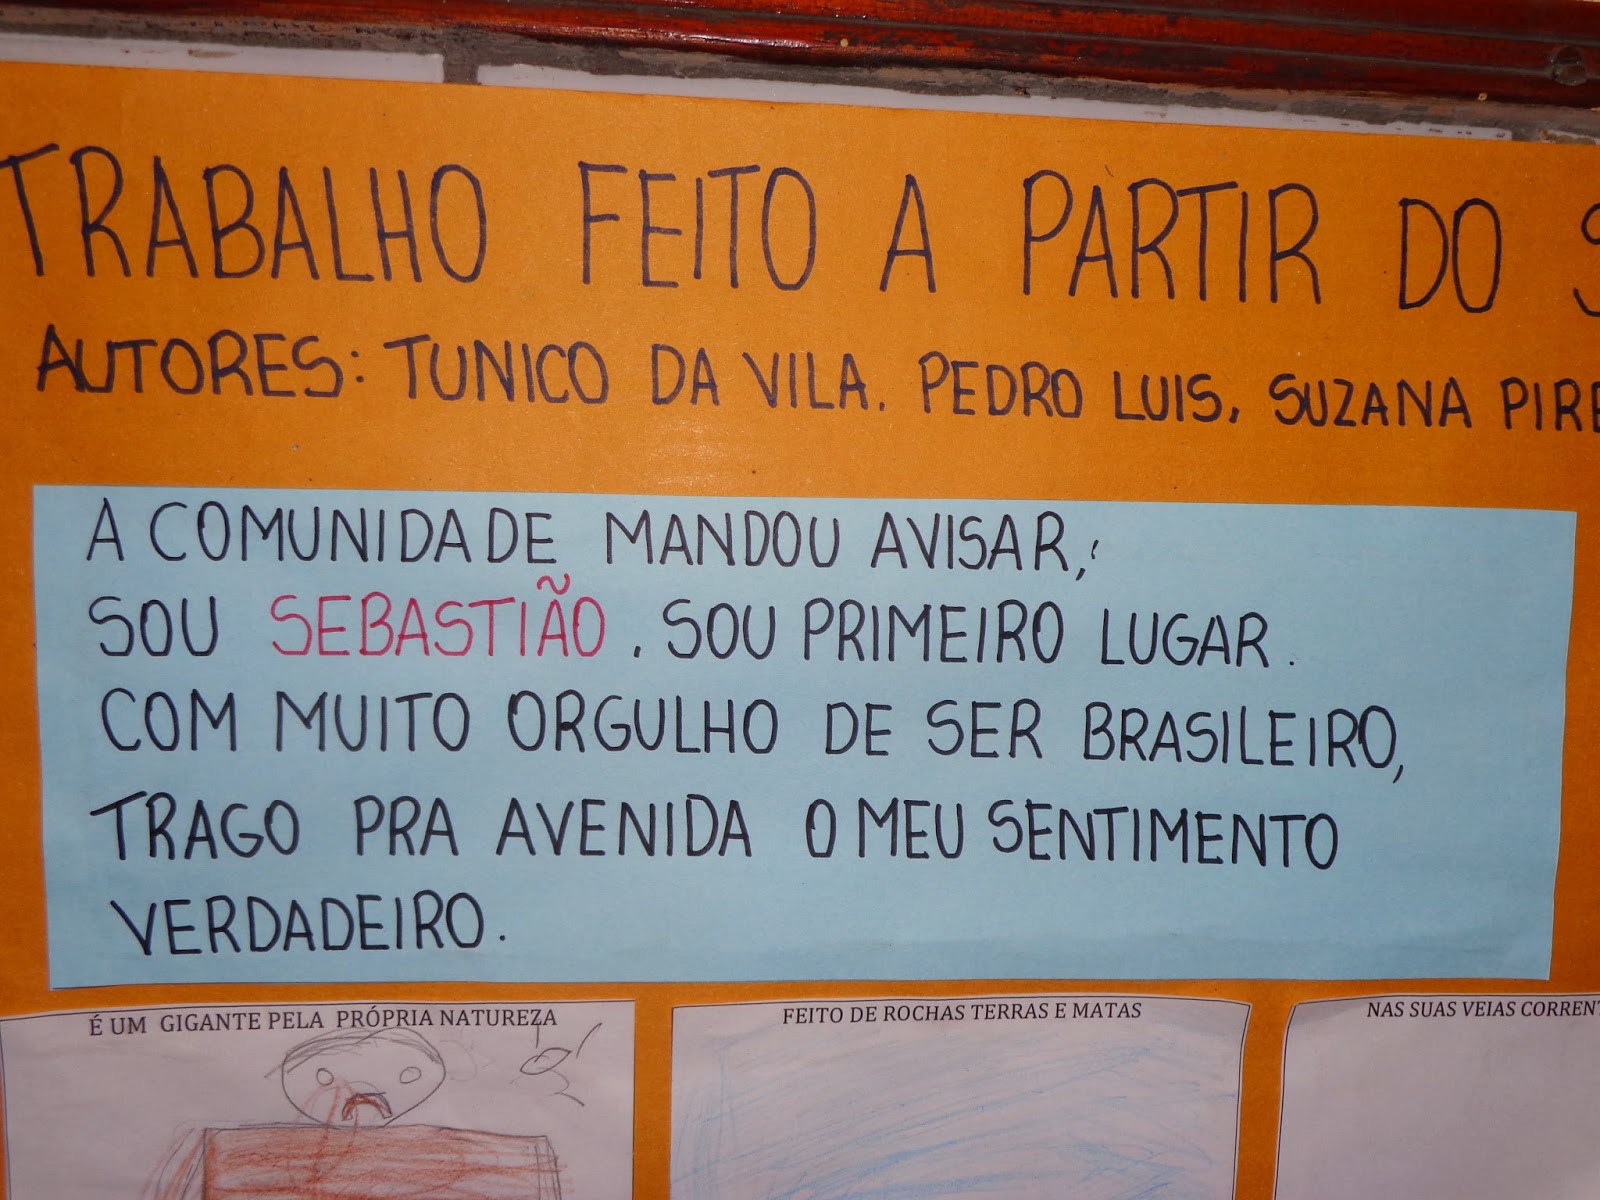 TRABALHO FEITO A PARTIR DO S
AUTORES: TUNICO DA VILA. PEDRO LUIS, SUZANA PIRE
A COMUNIDADE MANDOU AVISAR,:
SOU SEBASTIÃO. SOU PRIMEIRO LUGAR.
COM MUITO ORGULHO DE SER BRASILEIRO,
TRAGO PRA AVENIDA O MEU SENTIMENTO
VERDADEIRO.
É UM GIGANTE PELA PRÓPRIA NATUREZA
FEITO DE ROCHAS TERRAS E MATAS
NAS SUAS VEIAS CORREN